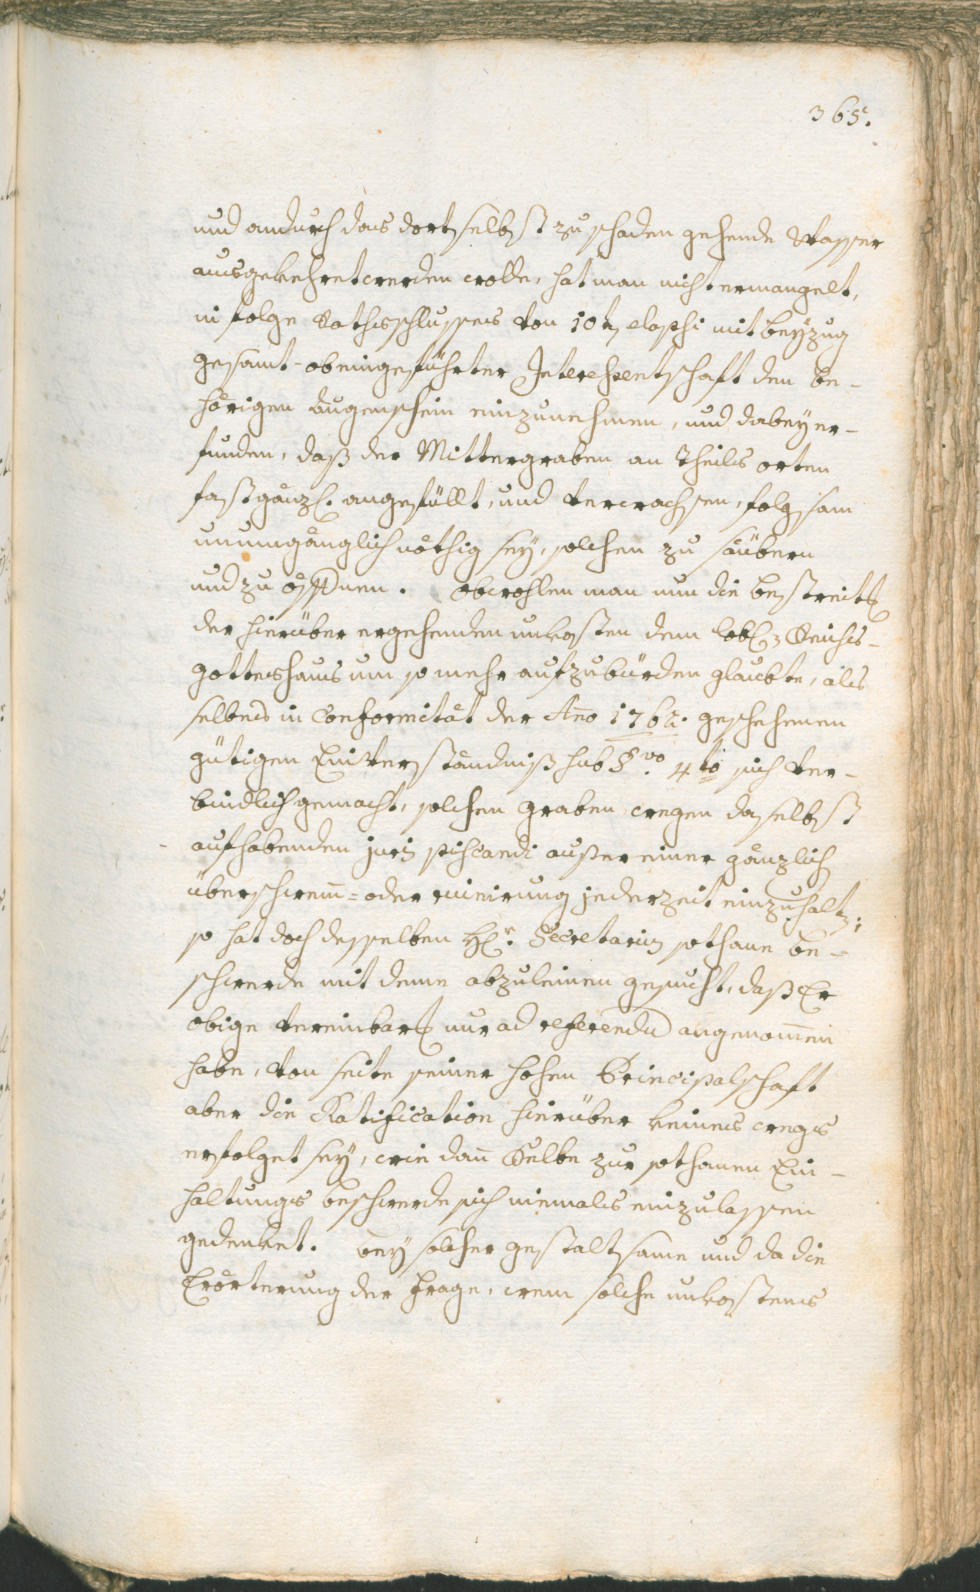 365.
und andurch das dortselbst zu schaden gehende Wasser
ausgekehret werden wolle, hat man nicht ermangelt,
in folge Rathsschlusses von 10t elapsi mit beyzug
gesamt-obeingeführter Interessentschaft den be-
hörigen Augenschein einzunehmen, und dabey er-
funden, daß der Mittergraben an Theils orten
fast gänzl. angefüllt, und verwachsen, folgsam
unumgänglich nöthig sey, solchen zu säubern
und zu öffnen. obwohlen man nun die bestreitt
der hierüber ergehenden unkosten dem löbl. Reichs-
gotteshaus um so mehr aufzubürden glaubte, als
selbes in Conformität der Ao 1762. geschehenen
gütigen Einverständniß sub §vo 4to sich ver-
bindlich gemacht, solchen graben wegen daselbst
aufhabenden juris piscandi ausser einer gänzlich
überschwem- oder ruinirung jederzeit einzuhalt;
so hat doch desselben Hr. Secretarius sothane be-
schwerde mit deme abzuleinen gesucht, daß Er
obige vereinbart nur ad referendu angenomen
habe, von seite seiner hohen Principalschaft
aber die Ratification hierüber keines wegs
erfolget sey, wie dan Selbe zur sothanen Ein-
haltungs beschwerde sich niemals einzulassen
gedenket. bey solcher gestaltsame und da die
Erörterung der frage, wem solche unkostens